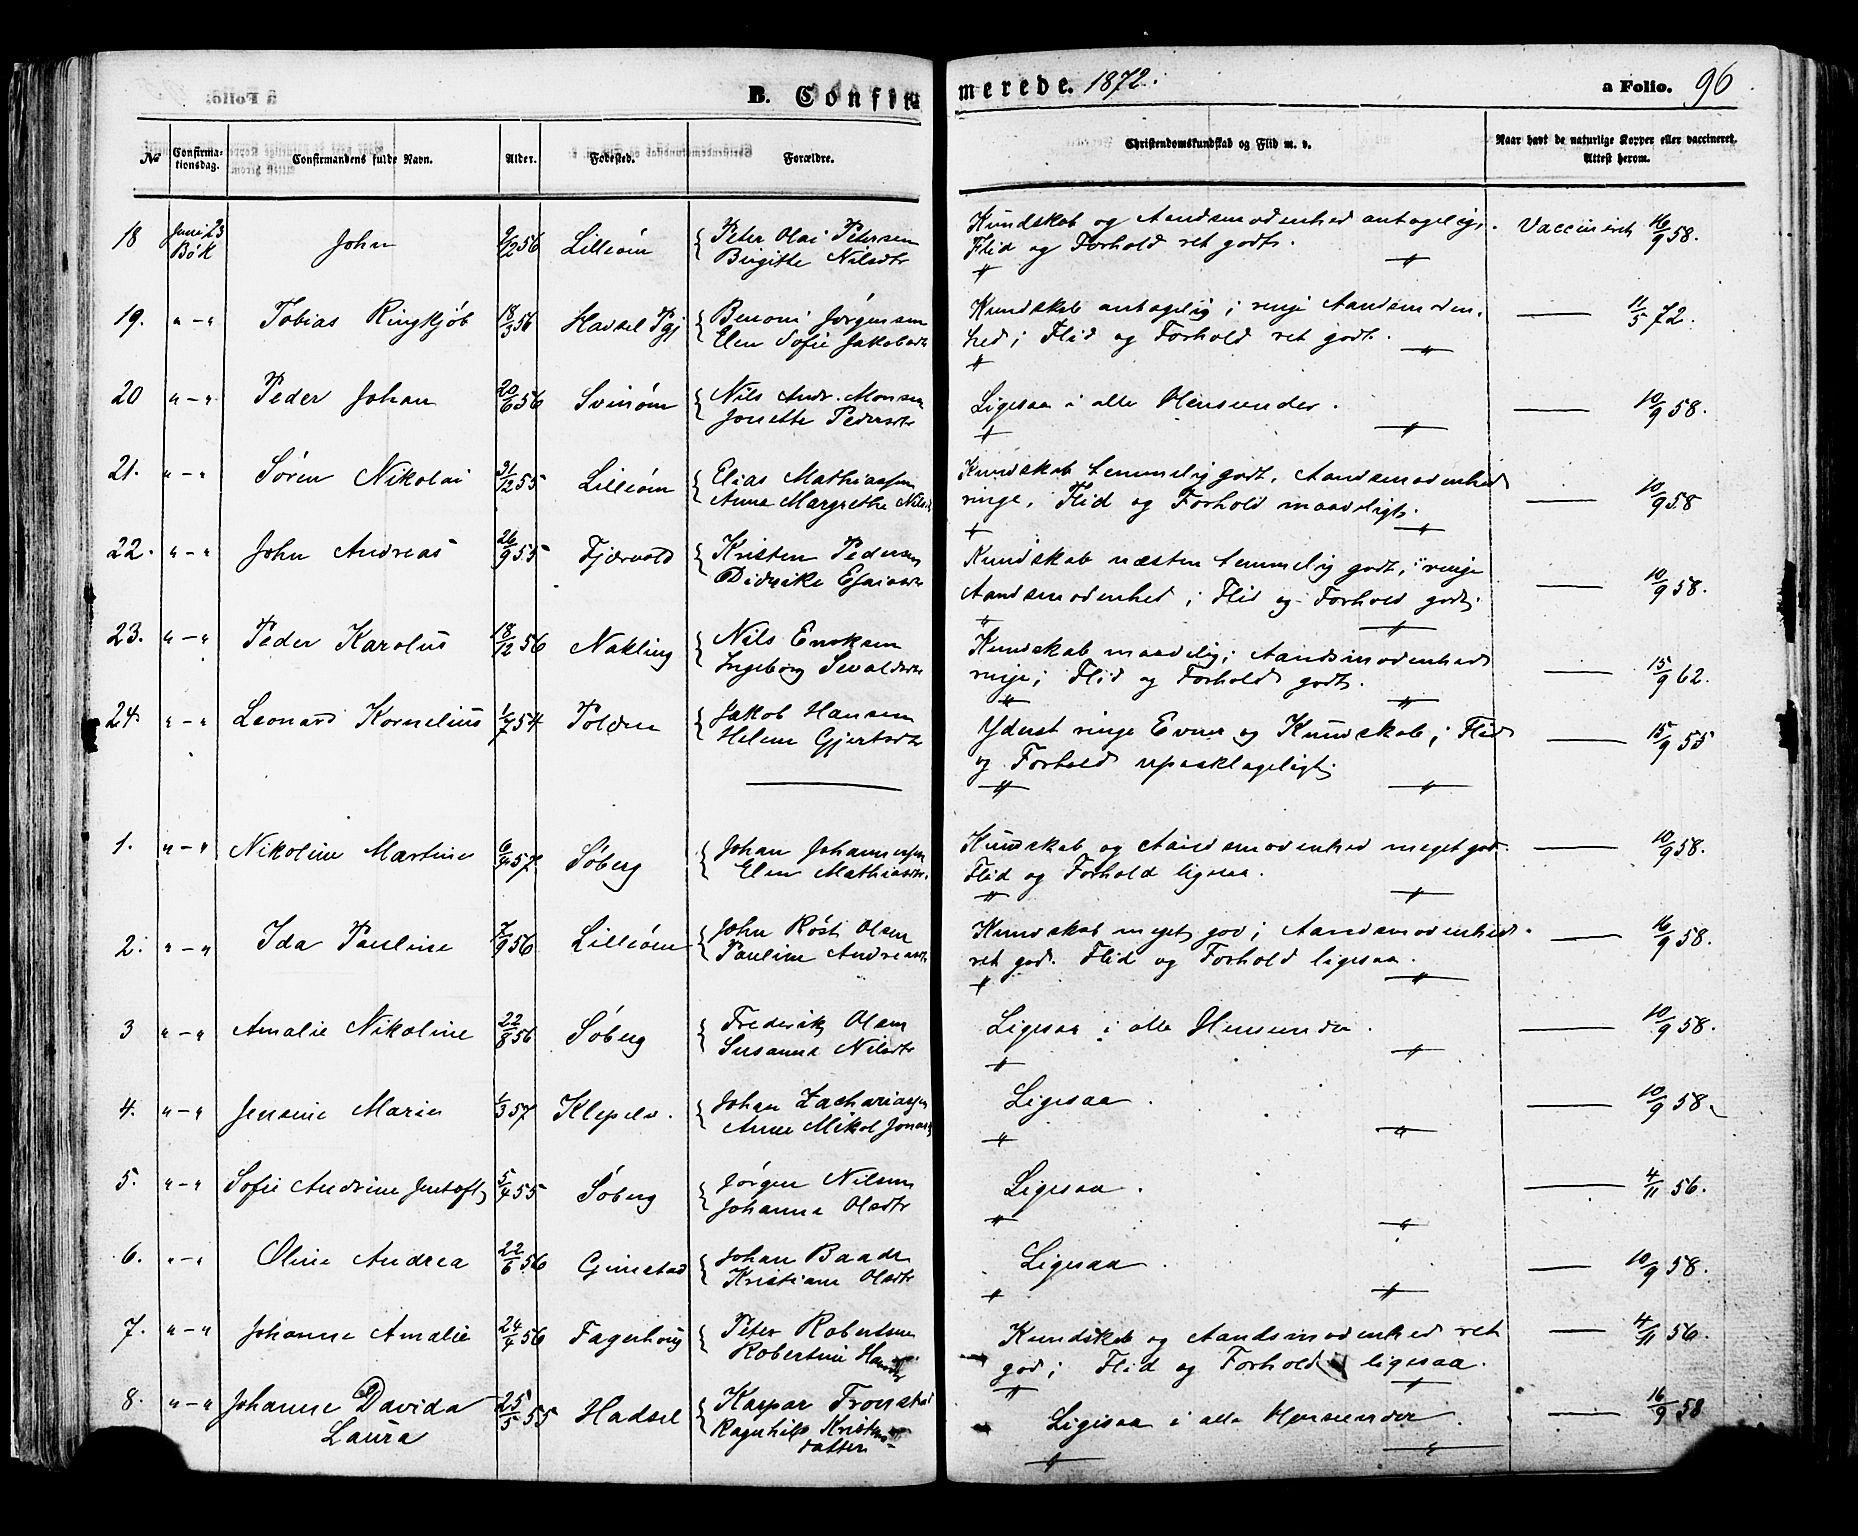 B. Confirmerede. 1872. a Folio. 96
No Confirmationsdag. Confirmandens fulde Navn. Alder. Fødested. Forældre. Christendomskundskab og Flid m. v. Naar havt de naturlige Kopper eller vaccineret. Attest herom.
18 Juni 23 John 9/2 56 Lilleøen { Peter Olai Petersen Kundskab og Aandsmodenhed antagelig, Vaccineret 16/9 58.
Bök Birgitte Nilsdtr Flid og Forhold ret godt.
19. " - " Tobias Ringkjöb 18/3 56 Hadsel Pgj { Benoni Jørgensen Kundskab antagelig; ringe Aandsmoden- — 11/5 72.
Elen Sofie Jakobsdtr hed; Flid og Forhold ret godt.
20 " - " Peder Johan 20/6 56 Svinøen { Nils Andr. Monsen Ligesaa i alle Henseender. — 10/9 58.
Jonette Pedersdtr
21. " - " Søren Nikolai 31/12 55 Lilleøen { Elias Mathiassen Kundskab temmelig godt, Aandsmodenhed — 10/9 58
Anna Margrethe Nilsd ringe, Flid og Forhold maadeligt.
22. " - " John Andreas 26/9 55 Fjærvold { Kristen Pedersen Kundskab næsten temmelig godt, ringe — 10/9 58.
Didrike Esaiasdtr Aandsmodenhet; Flid og Forhold godt;
23. " - " Peder Karolus 18/12 56 Nakling { Nils Eriksen Kundskab maadelig; Aandsmodenhed — 15/9 62.
Ingeborg Sivaldsdtr ringe; Flid og Forhold godt.
24. " - " Leonard Kornelius 1/7 54 Polden { Jakob Hansen Yderst ringe Evner og Kundskab; Flid — 15/9 55
Helene Gjertsdtr og Forhold upaaklageligt;
1. " - " Nikoline Martine 57. Søberg { Johan Johannessen Kundskab og Aandsmodenhed meget god. — 10/9 58.
Elen Mathiasdtr. Flid og Forhold ligesaa.
2. " - " Ida Pauline 7/9 56 Lilleøen { John Röst Olsen Kundskab meget god; Aandsmodenhed — 16/9 58.
Pauline Andreasdtr ret god. Flid og Forhold ligesaa.
3 " - " Amalie Nikoline 22/8 56 Søberg { Frederik Olsen Ligesaa i alle Henseender. — 10/9 58.
Susanna Nilsdtr
4. " - " Jensine Marie 1/3 57 Klepelv. { Johan Zachariassen Ligesaa. — 10/9 58
Anne Mikol Jonasd
5. " - " Sofie Andrine Jentoft 5/4 55 Søberg { Jørgen Nilsen Ligesaa. — 4/11 56.
Johanna Olsdtr
6. " - " Oline Andrea 22/6 56 Gimstad { Johan Baade Ligesaa. — 10/9 58.
Kristiane Olsdtr
7. " - " Johanne Amalie 24/4 56 Fagerhoug { Peter Robertsen Kundskab og Aandsmodenhed ret — 4/11 56.
Robertine Hansdtr god; Flid og Forhold ligesaa.
8. " - " Johanne Davida 25/5 55 Hadsel { Kaspar Tronstad Ligesaa i alle Henseender. — 16/9 58
Laura Ragnhild Kristens-
datter